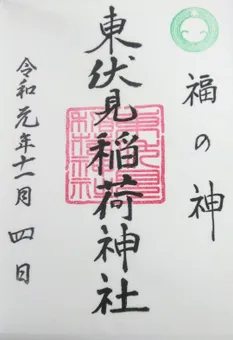 福の神
東伏見稲荷神社
令和元年十一月四日